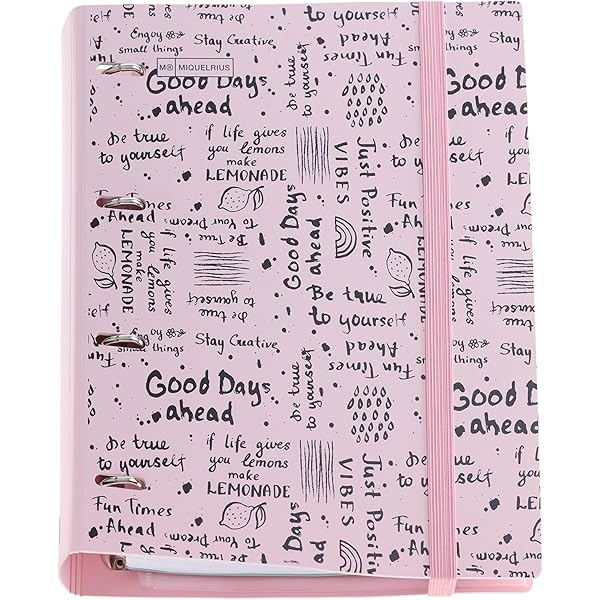 Enjoy
small things
Stay Creative
M® MIQUELRIUS
Good Days
ahead
Be true
to yourself
Fun Times
Ahead
Be true
to yourself
if life gives
you lemons
make
LEMONADE
Just Positive
VIBES
Fun Times
Ahead
To Your Dreams
Be True
Good Days
ahead
if life gives
you lemons
make
LEMONADE
Be true
to yourself
Be true
to yourself
if life gives
you lemons
make
LEMONADE
Enjoy
small things
Stay Creative
Fun Times
Ahead
Good Days
ahead
Be true
to yourself
Good Days
ahead
Be true
to yourself
if life gives
you lemons
make
LEMONADE
Just Positive
VIBES
Fun Times
Ahead
Good Days
ahead
Fun Times
Ahead
To Your Dreams